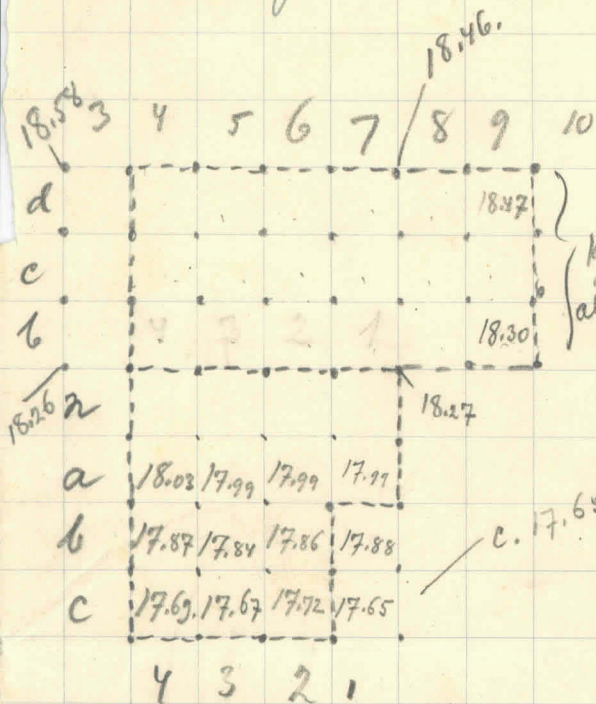 18.46.
18.58 3 4 5 6 7 8 9 10
d 18.47
c
b 4 3 2 1 18.30
18.26 18.27
a 18.03 17.99 17.99
b 17.87 17.84 17.86 17.88
c 17.69. 17.67 17.72 17.65
c. 17.6
4 3 2 1